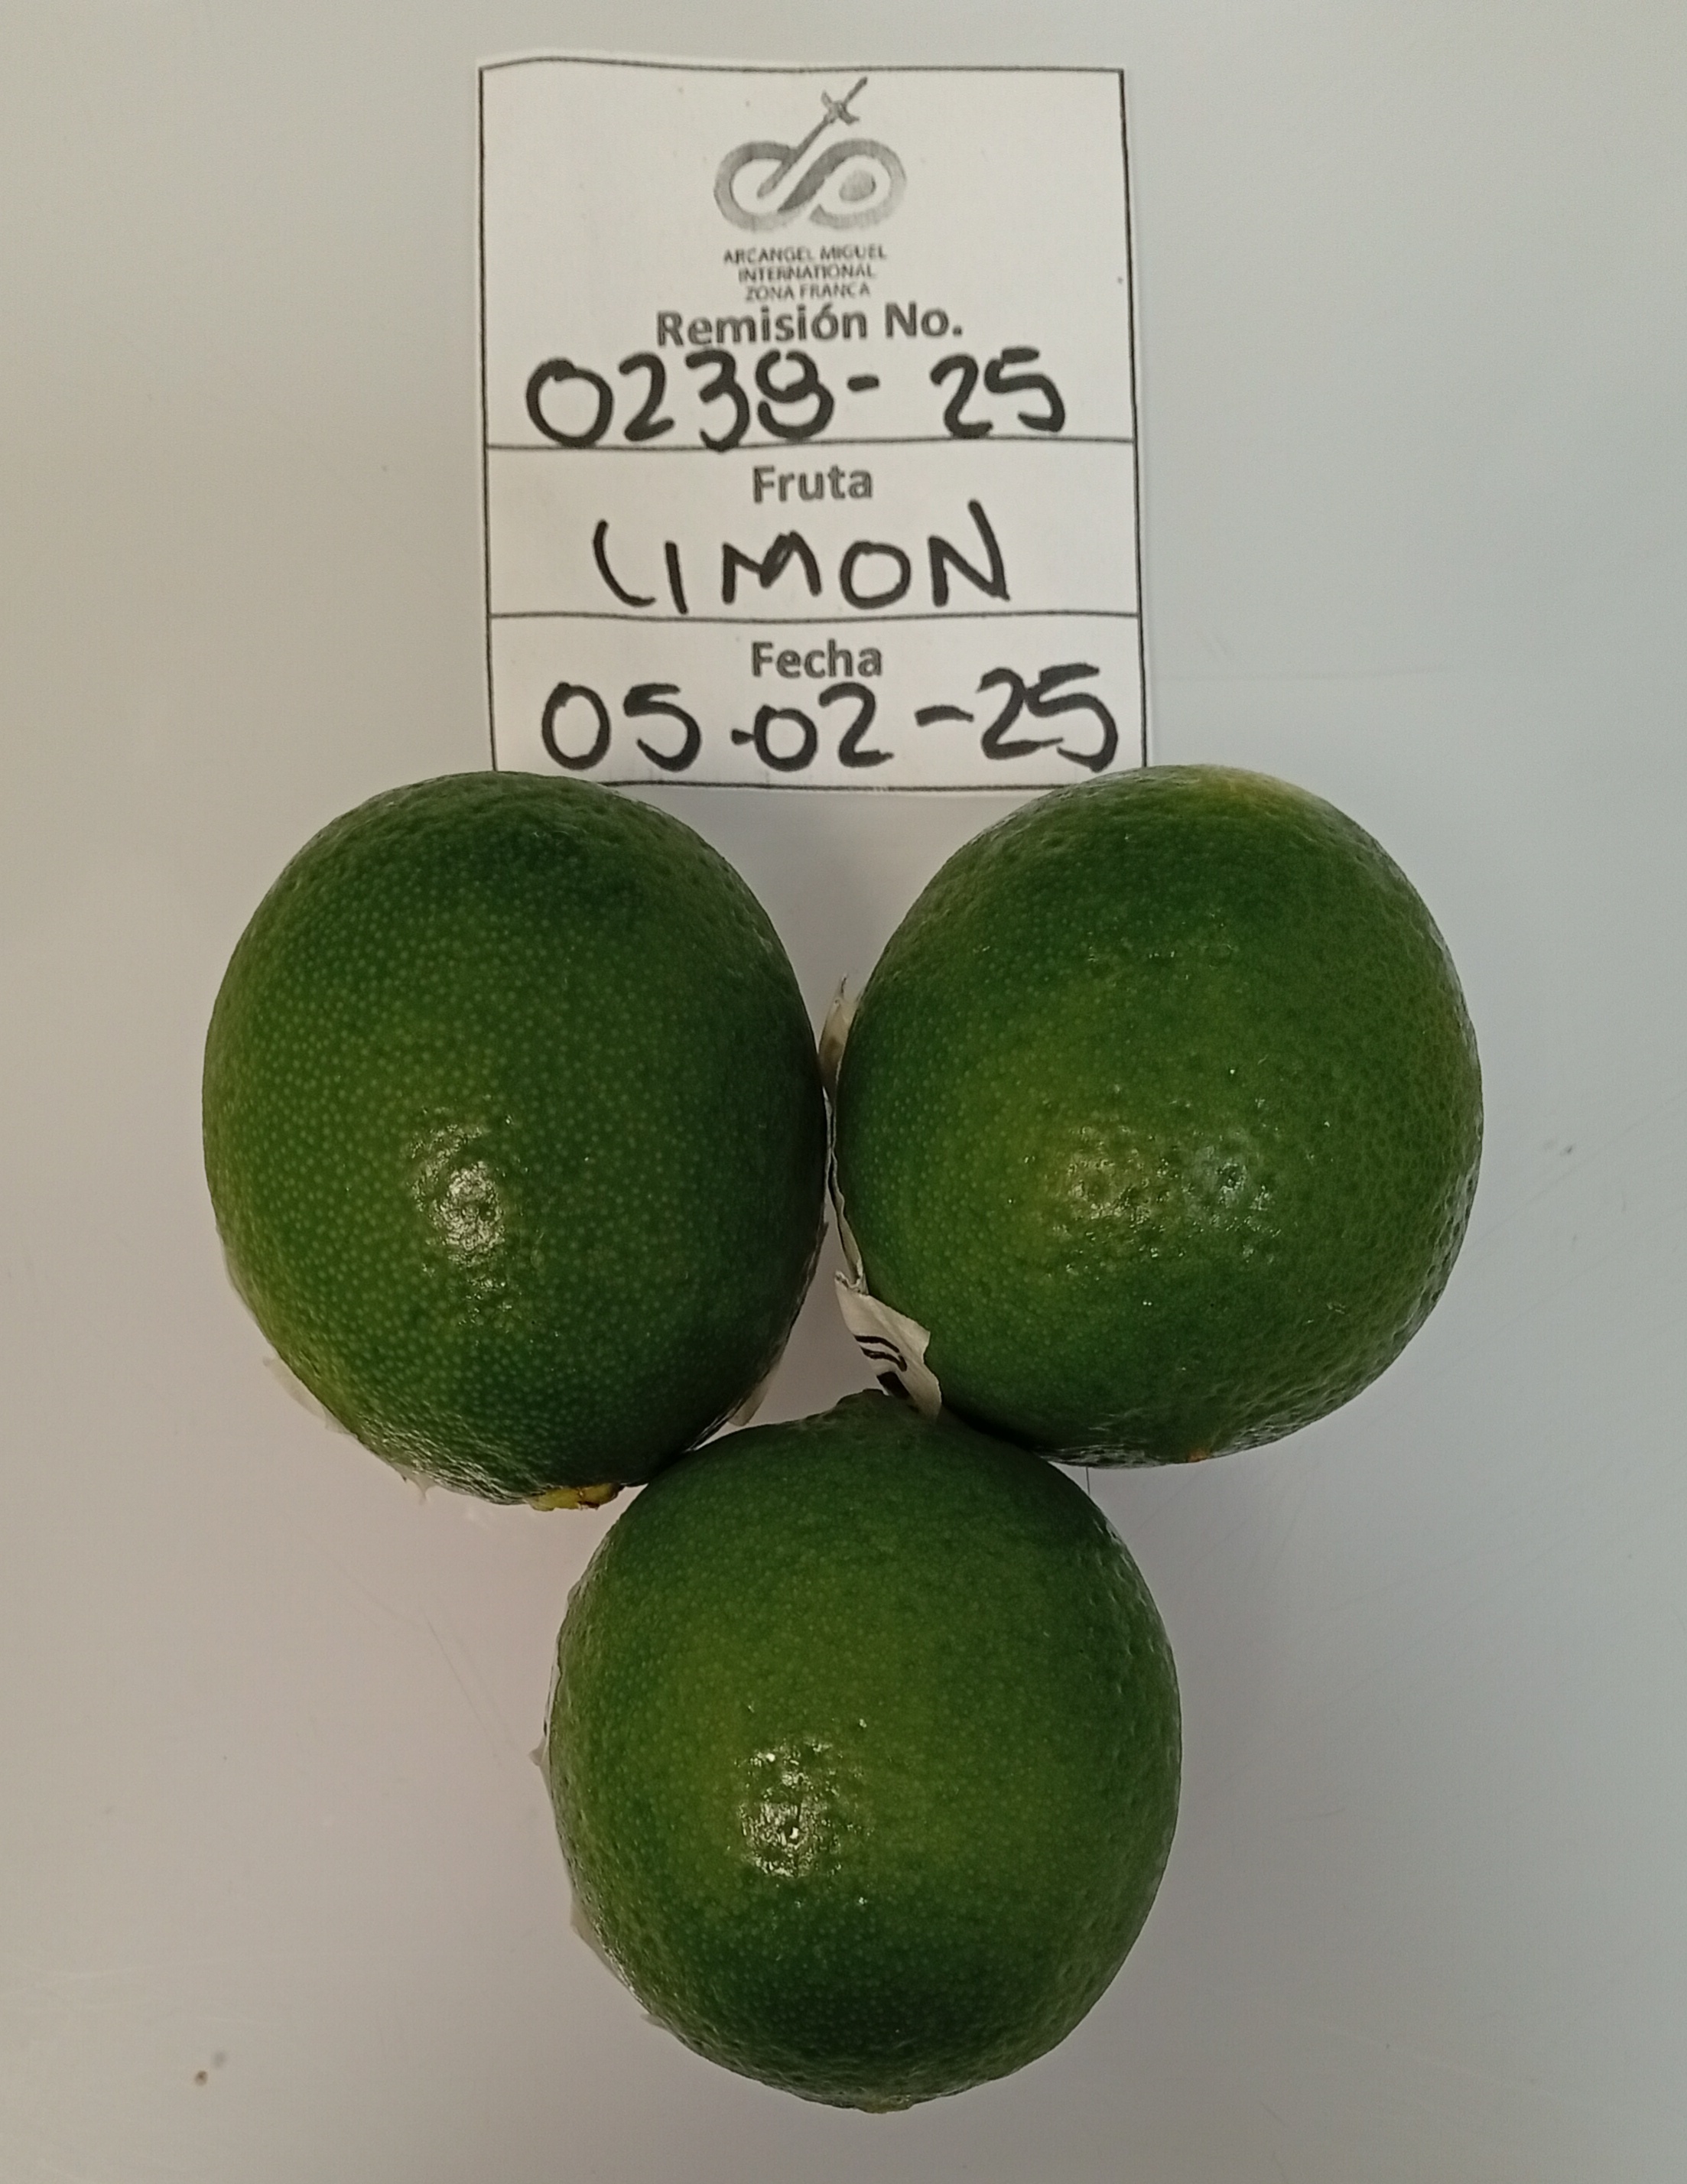 ARCANGEL MIGUEL
INTERNATIONAL
ZONA FRANCA
Remisión No.
0238-25
Fruta
LIMON
Fecha
05-02-25